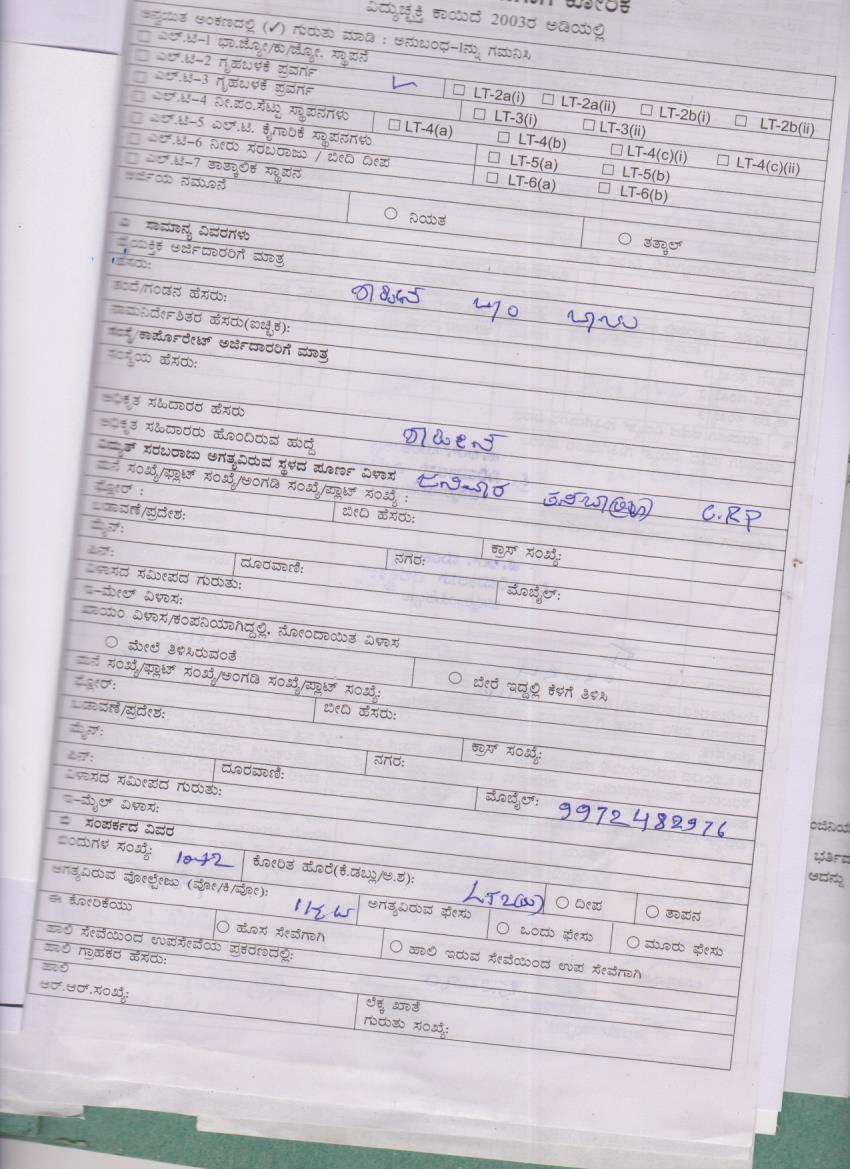 ಕೋರಿಕೆ
ವಿದ್ಯುಚ್ಛಕ್ತಿ ಕಾಯಿದೆ 2003ರ ಅಡಿಯಲ್ಲಿ
ಅನ್ವಯಿತ ಅಂಕಣದಲ್ಲಿ (✓) ಗುರುತು ಮಾಡಿ : ಅನುಬಂಧ-1ನ್ನು ಗಮನಿಸಿ
☐ ಎಲ್.ಟಿ-1 ಭಾ.ಜ್ಯೋ/ಕು/ಜ್ಯೋ. ಸ್ಥಾಪನೆ
☐ ಎಲ್.ಟಿ-2 ಗೃಹಬಳಕೆ ಪ್ರವರ್ಗ ☐ LT-2a(i) ☐ LT-2a(ii) ☐ LT-2b(i) ☐ LT-2b(ii)
☐ ಎಲ್.ಟಿ-3 ಗೃಹಬಳಕೆ ಪ್ರವರ್ಗ ☐ LT-3(i) ☐ LT-3(ii)
☐ ಎಲ್.ಟಿ-4 ನೀ.ಪಂ.ಸೆಟ್ಟು ಸ್ಥಾಪನಗಳು ☐ LT-4(a) ☐ LT-4(b) ☐ LT-4(c)(i) ☐ LT-4(c)(ii)
☐ ಎಲ್.ಟಿ-5 ಎಲ್.ಟಿ. ಕೈಗಾರಿಕೆ ಸ್ಥಾಪನಗಳು ☐ LT-5(a) ☐ LT-5(b)
☐ ಎಲ್.ಟಿ-6 ನೀರು ಸರಬರಾಜು / ಬೀದಿ ದೀಪ ☐ LT-6(a) ☐ LT-6(b)
☐ ಎಲ್.ಟಿ-7 ತಾತ್ಕಾಲಿಕ ಸ್ಥಾಪನ
ಅರ್ಜಿಯ ನಮೂನೆ ○ ನಿಯತ ○ ತತ್ಕಾಲ್
ಎ ಸಾಮಾನ್ಯ ವಿವರಗಳು
ವೈಯಕ್ತಿಕ ಅರ್ಜಿದಾರರಿಗೆ ಮಾತ್ರ
ಹೆಸರು:
ತಂದೆ/ಗಂಡನ ಹೆಸರು:
ನಾಮನಿರ್ದೇಶಿತರ ಹೆಸರು(ಐಚ್ಛಿಕ):
ಸಂಸ್ಥೆ/ಕಾರ್ಪೊರೇಟ್ ಅರ್ಜಿದಾರರಿಗೆ ಮಾತ್ರ
ಸಂಸ್ಥೆಯ ಹೆಸರು:
ಅಧಿಕೃತ ಸಹಿದಾರರ ಹೆಸರು
ಅಧಿಕೃತ ಸಹಿದಾರರು ಹೊಂದಿರುವ ಹುದ್ದೆ
ವಿದ್ಯುತ್ ಸರಬರಾಜು ಅಗತ್ಯವಿರುವ ಸ್ಥಳದ ಪೂರ್ಣ ವಿಳಾಸ
ಮನೆ ಸಂಖ್ಯೆ/ಫ್ಲಾಟ್ ಸಂಖ್ಯೆ/ಅಂಗಡಿ ಸಂಖ್ಯೆ/ಪ್ಲಾಟ್ ಸಂಖ್ಯೆ : C.RP
ಫ್ಲೋರ್ :
ಬಡಾವಣೆ/ಪ್ರದೇಶ: ಬೀದಿ ಹೆಸರು:
ಮೈನ್: ಕ್ರಾಸ್ ಸಂಖ್ಯೆ:
ಪಿನ್: ದೂರವಾಣಿ: ನಗರ: ಮೊಬೈಲ್:
ವಿಳಾಸದ ಸಮೀಪದ ಗುರುತು:
ಇ-ಮೇಲ್ ವಿಳಾಸ:
ಖಾಯಂ ವಿಳಾಸ/ಕಂಪನಿಯಾಗಿದ್ದಲ್ಲಿ, ನೋಂದಾಯಿತ ವಿಳಾಸ
○ ಮೇಲೆ ತಿಳಿಸಿರುವಂತೆ ○ ಬೇರೆ ಇದ್ದಲ್ಲಿ ಕೆಳಗೆ ತಿಳಿಸಿ
ಮನೆ ಸಂಖ್ಯೆ/ಫ್ಲಾಟ್ ಸಂಖ್ಯೆ/ಅಂಗಡಿ ಸಂಖ್ಯೆ/ಪ್ಲಾಟ್ ಸಂಖ್ಯೆ:
ಫ್ಲೋರ್:
ಬಡಾವಣೆ/ಪ್ರದೇಶ: ಬೀದಿ ಹೆಸರು:
ಮೈನ್: ಕ್ರಾಸ್ ಸಂಖ್ಯೆ:
ಪಿನ್: ದೂರವಾಣಿ: ನಗರ: ಮೊಬೈಲ್: 9972482976
ವಿಳಾಸದ ಸಮೀಪದ ಗುರುತು:
ಇ-ಮೈಲ್ ವಿಳಾಸ:
ಬಿ ಸಂಪರ್ಕದ ವಿವರ
ಬಿಂದುಗಳ ಸಂಖ್ಯೆ: ಕೋರಿತ ಹೊರೆ(ಕೆ.ಡಬ್ಲು/ಅ.ಶ):
ಅಗತ್ಯವಿರುವ ವೋಲ್ಟೇಜು (ವೋ/ಕಿ/ವೋ): ಅಗತ್ಯವಿರುವ ಫೇಸು ○ ದೀಪ ○ ತಾಪನ
ಈ ಕೋರಿಕೆಯು ○ ಹೊಸ ಸೇವೆಗಾಗಿ ○ ಒಂದು ಫೇಸು ○ ಮೂರು ಫೇಸು
○ ಹಾಲಿ ಇರುವ ಸೇವೆಯಿಂದ ಉಪ ಸೇವೆಗಾಗಿ
ಹಾಲಿ ಸೇವೆಯಿಂದ ಉಪಸೇವೆಯ ಪ್ರಕರಣದಲ್ಲಿ:
ಹಾಲಿ ಗ್ರಾಹಕರ ಹೆಸರು:
ಹಾಲಿ
ಆರ್.ಆರ್.ಸಂಖ್ಯೆ: ಲೆಕ್ಕ ಖಾತೆ
ಗುರುತು ಸಂಖ್ಯೆ:
ಭರ್ತಿಮ
ಅದನ್ನು